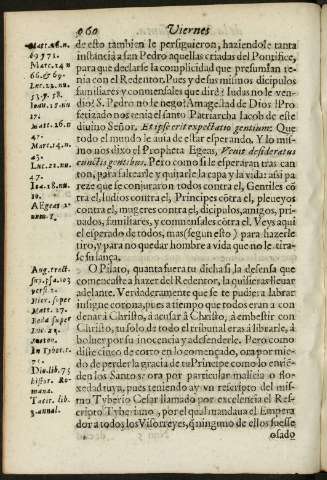 960 Viernes
Matt. 26. n.
69 y 71.
Marc. 14 n
66. & 69.
Luc. 22. nu.
Matt. 26. n
47.
Marc. 14. n.
43.
Luc. 22. nu.
47.
Ioa. 18. nu.
de esto tambien le persiguieron, haziendole tanta
instancia à san Pedro aquellas criadas del Pontifice,
para que declarase la complicidad que presumian te-
nia con el Redentor. Pues y de sus mismos dicipulos
familiares y comensales que dirè? Iudas no le ven-
diò? S. Pedro no le negò? A magestad de Dios! Pro-
fetizado nos tenia el santo Patriarcha Iacob de este
diuino Señor. Et ipse erit expectatio gentium: Que
todo el mundo le auia de estar esperando. Y lo mis-
mo nos dixo el Propheta Egeas, Veniet desideratus
cunctis gentibus. Pero como si le esperàran tras can-
ton, para saltearle y quitarle la capa y la vida: assi pa
reze que se conjuraron todos contra el, Gentiles cõ
tra el, Iudios contra el, Principes còtra el, pleueyos
contra el, mugeres contra el, dicipulos, amigos, pri-
uados, familiares, y comensales còtra el. Veys aqui
el esperado de todos, mas (segun esto) para hazerle
tiro, y para no quedar hombre a vida que no le tira-
se su lança.
Matt. 27.
Beda super
Luc. 23.
In Tyber. c.
75.
Dio. lib. 75
histor. Ro-
mana.
Tacit. lib.
3. annal.
O Pilato, quanta fuera tu dicha si la defensa que
començaste a hazer del Redentor, la quisieras lleuar
adelante. Verdaderamente que se te pudiera labrar
insigne corona, pues a tiempo que todos eran a con
denar à Christo, à acusar à Christo, à embestir con
Christo, tu solo de todo el tribunal eras à librarle, à
boluer por su inocencia y a defenderle. Pero como
diste cinco de corto en lo començado, ora por mie-
do de perder la gracia de tu Principe como lo entiẽ-
den los Santos; ora por particular malicia o flo-
xedad tuya, pues teniendo ay vn rescripto del mis-
mo Tyberio Cesar llamado por excelencia el Res-
cripto Tyberiano, por el qual mandaua el Empera
dor a todos los Visorreyes, q̃ ninguno de ellos fuesse
osado